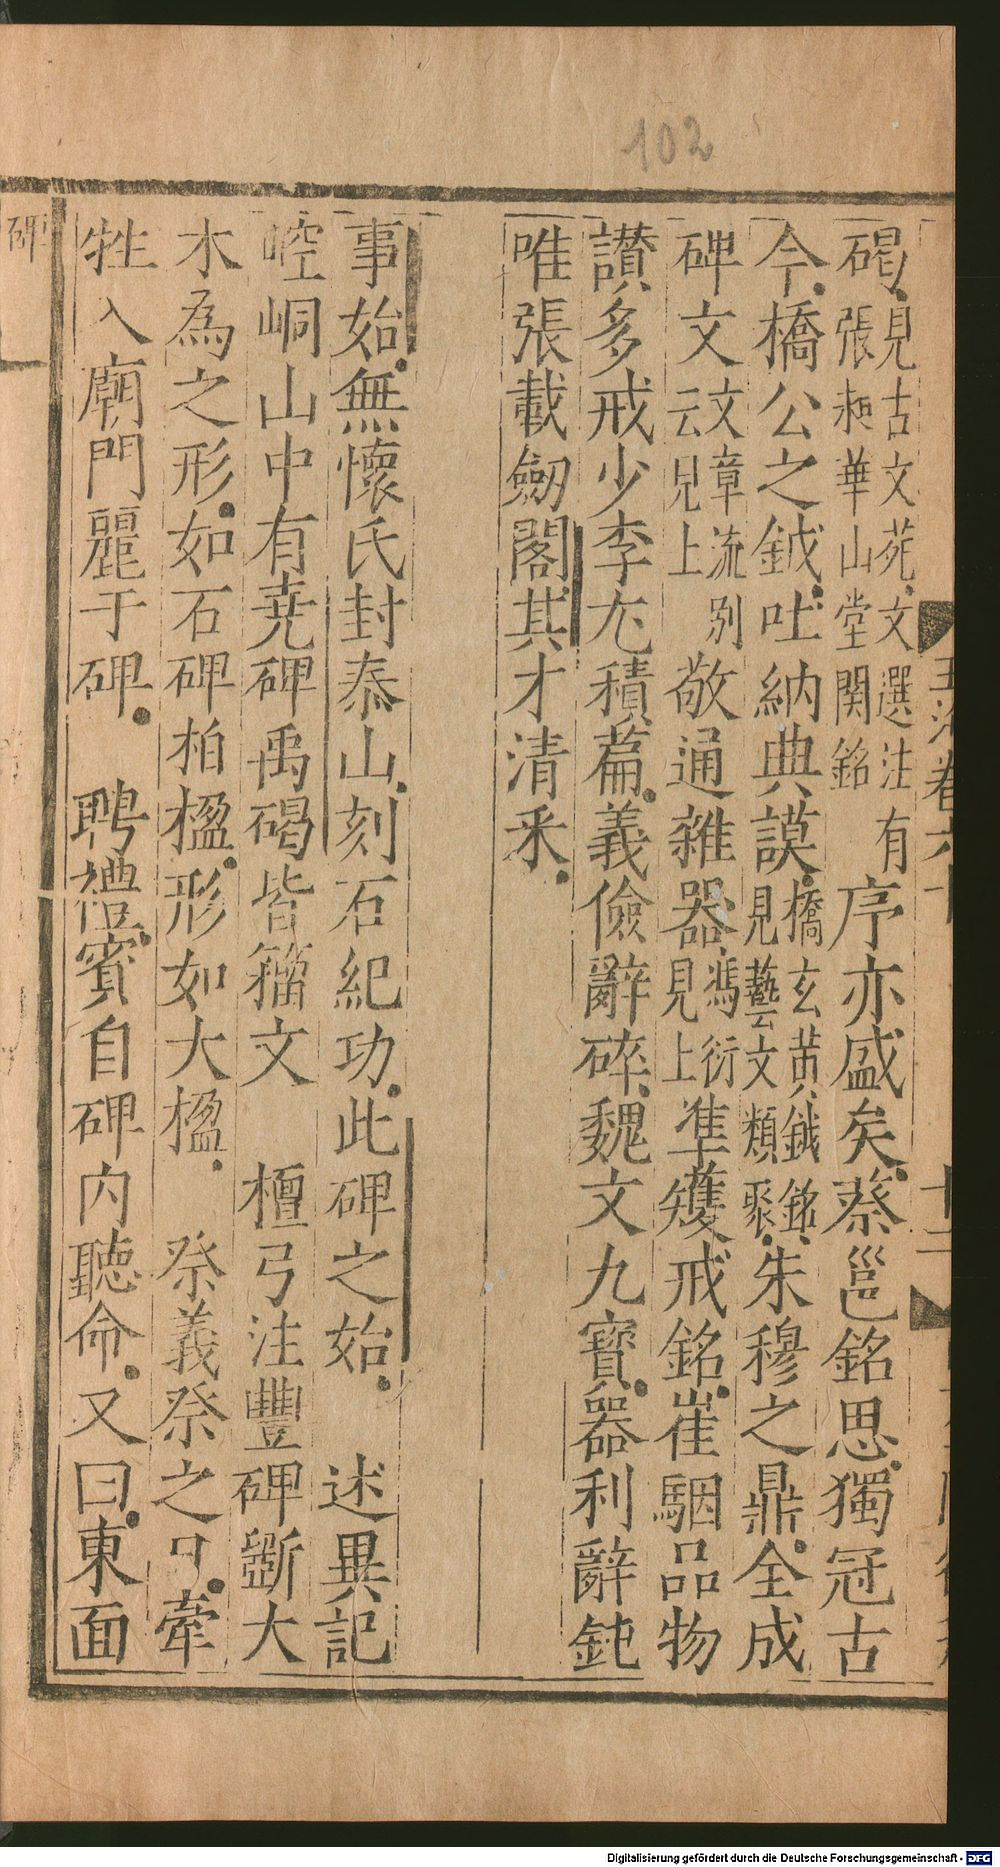 102
碣見古文苑文選注有
張昶華山堂闕銘
序亦盛矣蔡邕銘思獨冠古
今橋公之鉞吐納典謨橋玄黄鉞銘
見藝文類聚
朱穆之鼎全成
碑文文章流别
云見上
敬通雜器馮衍
見上
準矱戒銘崔駰品物
讃多戒少李尤積篇義儉辭碎魏文九寶器利辭鈍
唯張載劒閣其才清采
事始無懷氏封泰山刻石紀功此碑之始 述異記
崆峒山中有堯碑禹碣皆籀文 檀弓注豐碑斲大
木為之形如石碑柏楹形如大楹 祭義祭之日牽
牲入廟門麗于碑 聘禮賓自碑内聽命又曰東面
碑
玉海卷六十
十二
Digitalisierung gefördert durch die Deutsche Forschungsgemeinschaft - DFG